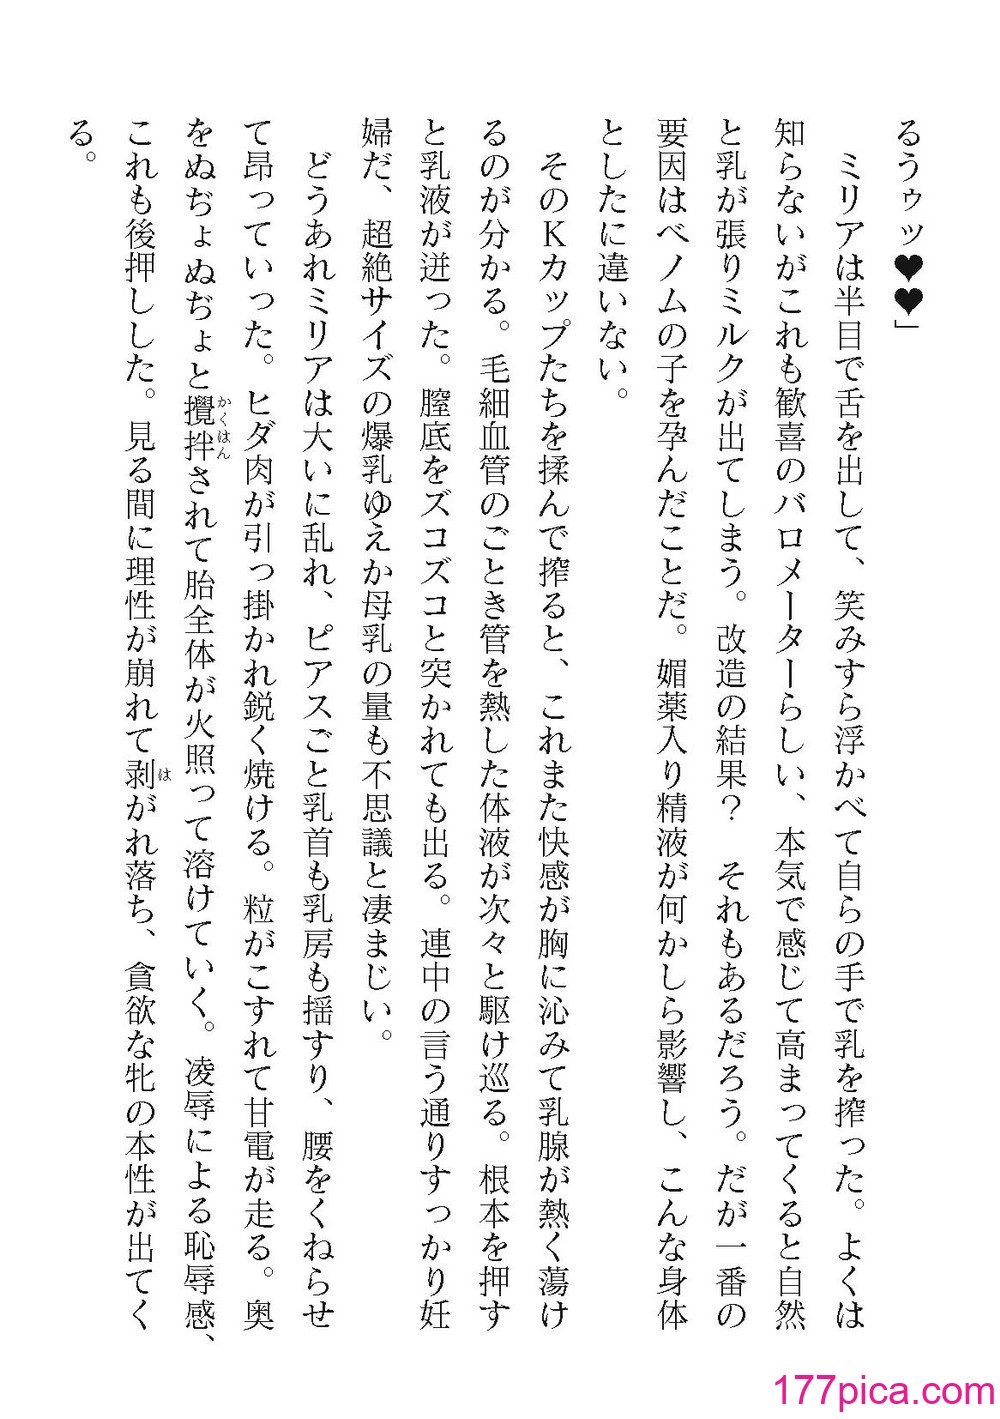 るうゥッ♥♥」
ミリアは半目で舌を出して、笑みすら浮かべて自らの手で乳を搾った。よくは
知らないがこれも歓喜のバロメーターらしい、本気で感じて高まってくると自然
と乳が張りミルクが出てしまう。改造の結果？　それもあるだろう。だが一番の
要因はベノムの子を孕んだことだ。媚薬入り精液が何かしら影響し、こんな身体
としたに違いない。
そのＫカップたちを揉んで搾ると、これまた快感が胸に沁みて乳腺が熱く蕩け
るのが分かる。毛細血管のごとき管を熱した体液が次々と駆け巡る。根本を押す
と乳液が迸った。膣底をズコズコと突かれても出る。連中の言う通りすっかり妊
婦だ、超絶サイズの爆乳ゆえか母乳の量も不思議と凄まじい。
どうあれミリアは大いに乱れ、ピアスごと乳首も乳房も揺すり、腰をくねらせ
て昂っていった。ヒダ肉が引っ掛かれ鋭く焼ける。粒がこすれて甘電が走る。奥
をぬぢょぬぢょと攪拌（かくはん）されて胎全体が火照って溶けていく。凌辱による恥辱感、
これも後押しした。見る間に理性が崩れて剥（は）がれ落ち、貪欲な牝の本性が出てく
る。
177pica.com